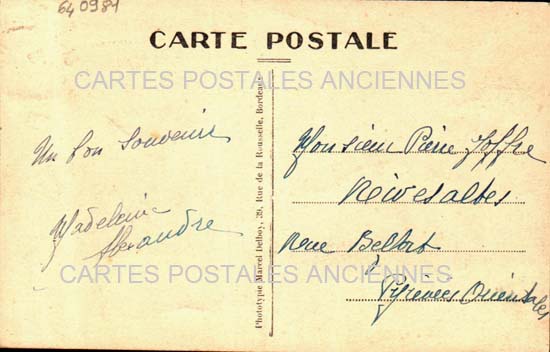 640984
CARTE POSTALE
CARTES POSTALES ANCIENNES
Un bon souvenir
Madeleine
Alexandre
Phototypie Marcel Delboy, 39, Rue de la Rousselle, Bordeaux
Monsieur Pierre Joffre
Rivesaltes
Rue Belfort
Pyrénées Orientales
CARTES POSTALES ANCIENNES